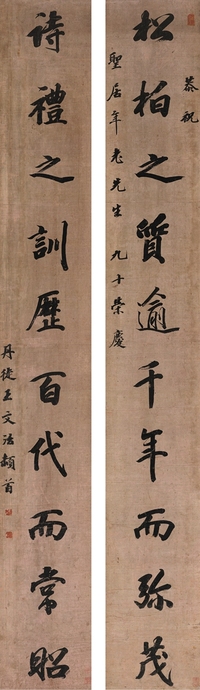 恭祝
松柏之質逾千年而弥茂
聖居年老先生九十榮慶
詩禮之訓歷百代而常昭
丹徒王文治頓首